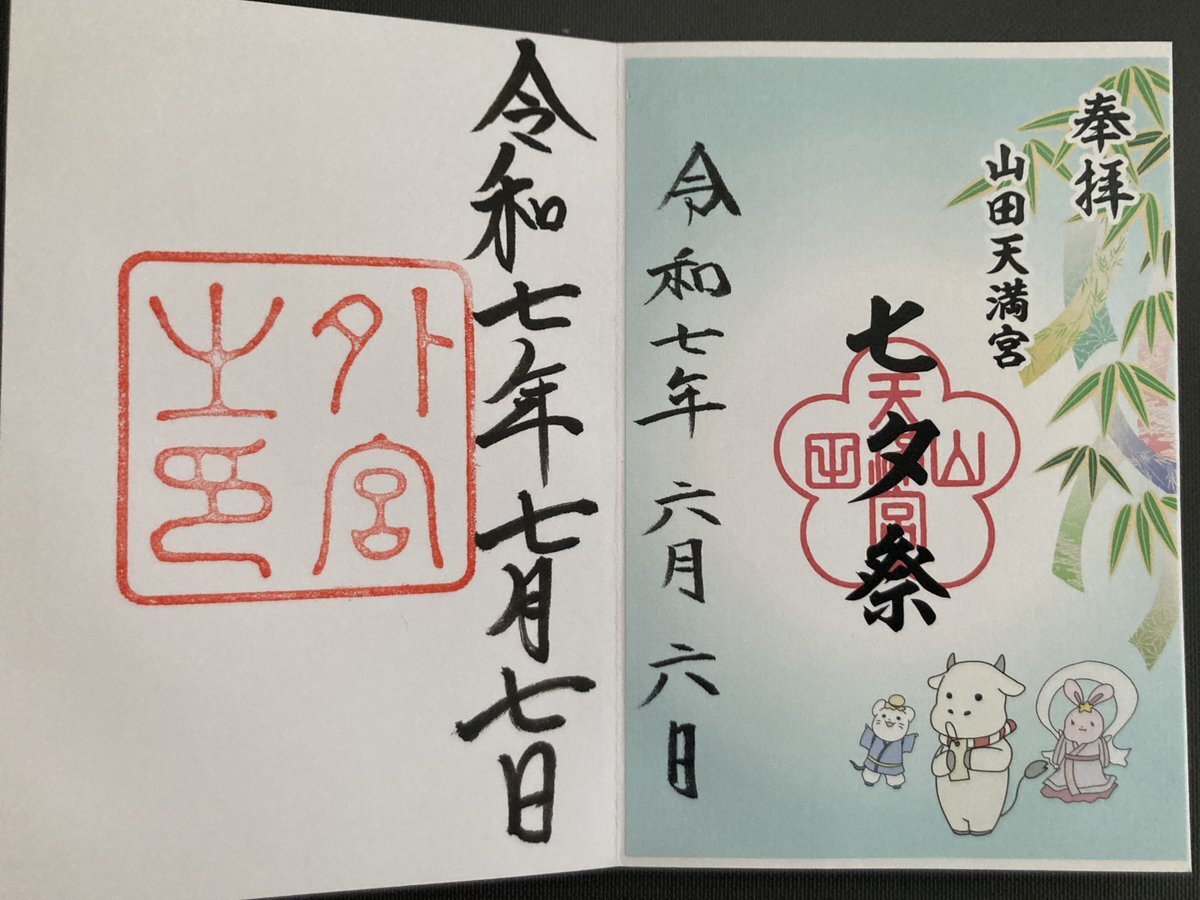 奉拝
山田天満宮
七夕祭
山田
天満宮
令和七年 六月六日
令和七年七月七日
外宮
之印